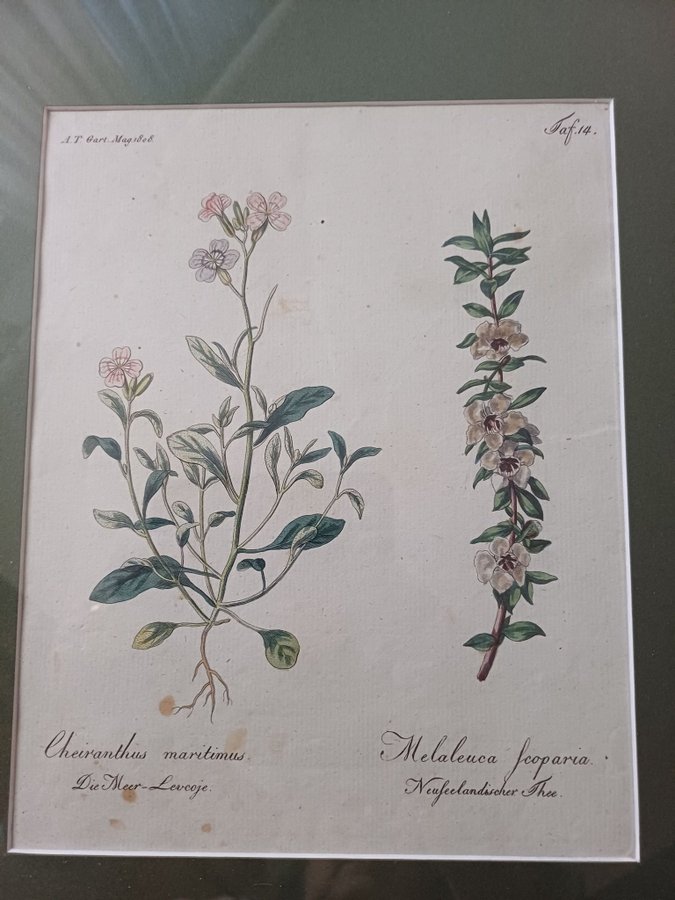 A.T. Gart. Mag. 1808.
Taf. 14.
Cheiranthus maritimus.
Die Meer-Levcoje.
Melaleuca ſcoparia.
Neuſeelandischer Thee.